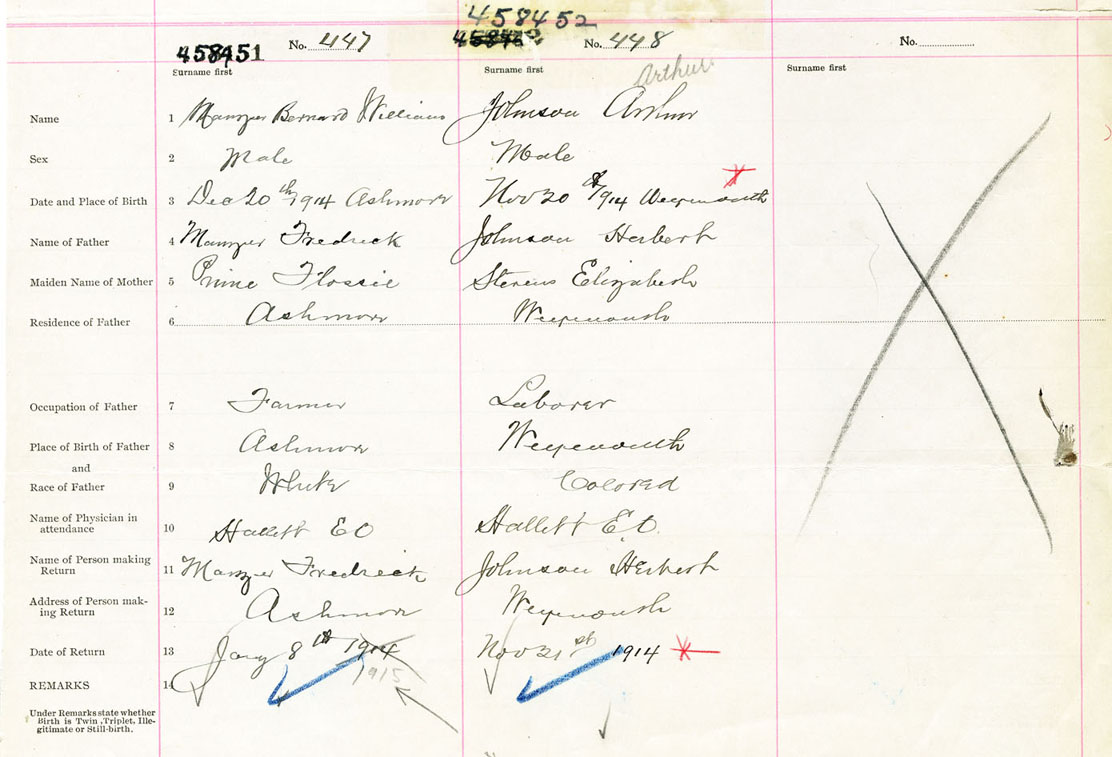 458452
458451 No. 447 No. 448 No.
Surname first Surname first Arthur Surname first
Name 1 Manzer Bernard William Johnson Arthur
Sex 2 Male Male
Date and Place of Birth 3 Dec 20th 1914 Ashmore Nov 20 1914 Weymouth
Name of Father 4 Manzer Fredrick Johnson Herbert
Maiden Name of Mother 5 Prime Flossie Stevens Elizabeth
Residence of Father 6 Ashmore Weymouth
Occupation of Father 7 Farmer Laborer
Place of Birth of Father 8 Ashmore Weymouth
and
Race of Father 9 White Colored
Name of Physician in
attendance 10 Hallett E O Hallett E.O.
Name of Person making
Return 11 Manzer Fredrick Johnson Herbert
Address of Person mak-
ing Return 12 Ashmore Weymouth
Date of Return 13 Jany 8th 1914 Nov 21st 1914
1915
REMARKS 14
Under Remarks state whether
Birth is Twin ,Triplet, Ille-
gitimate or Still-birth.